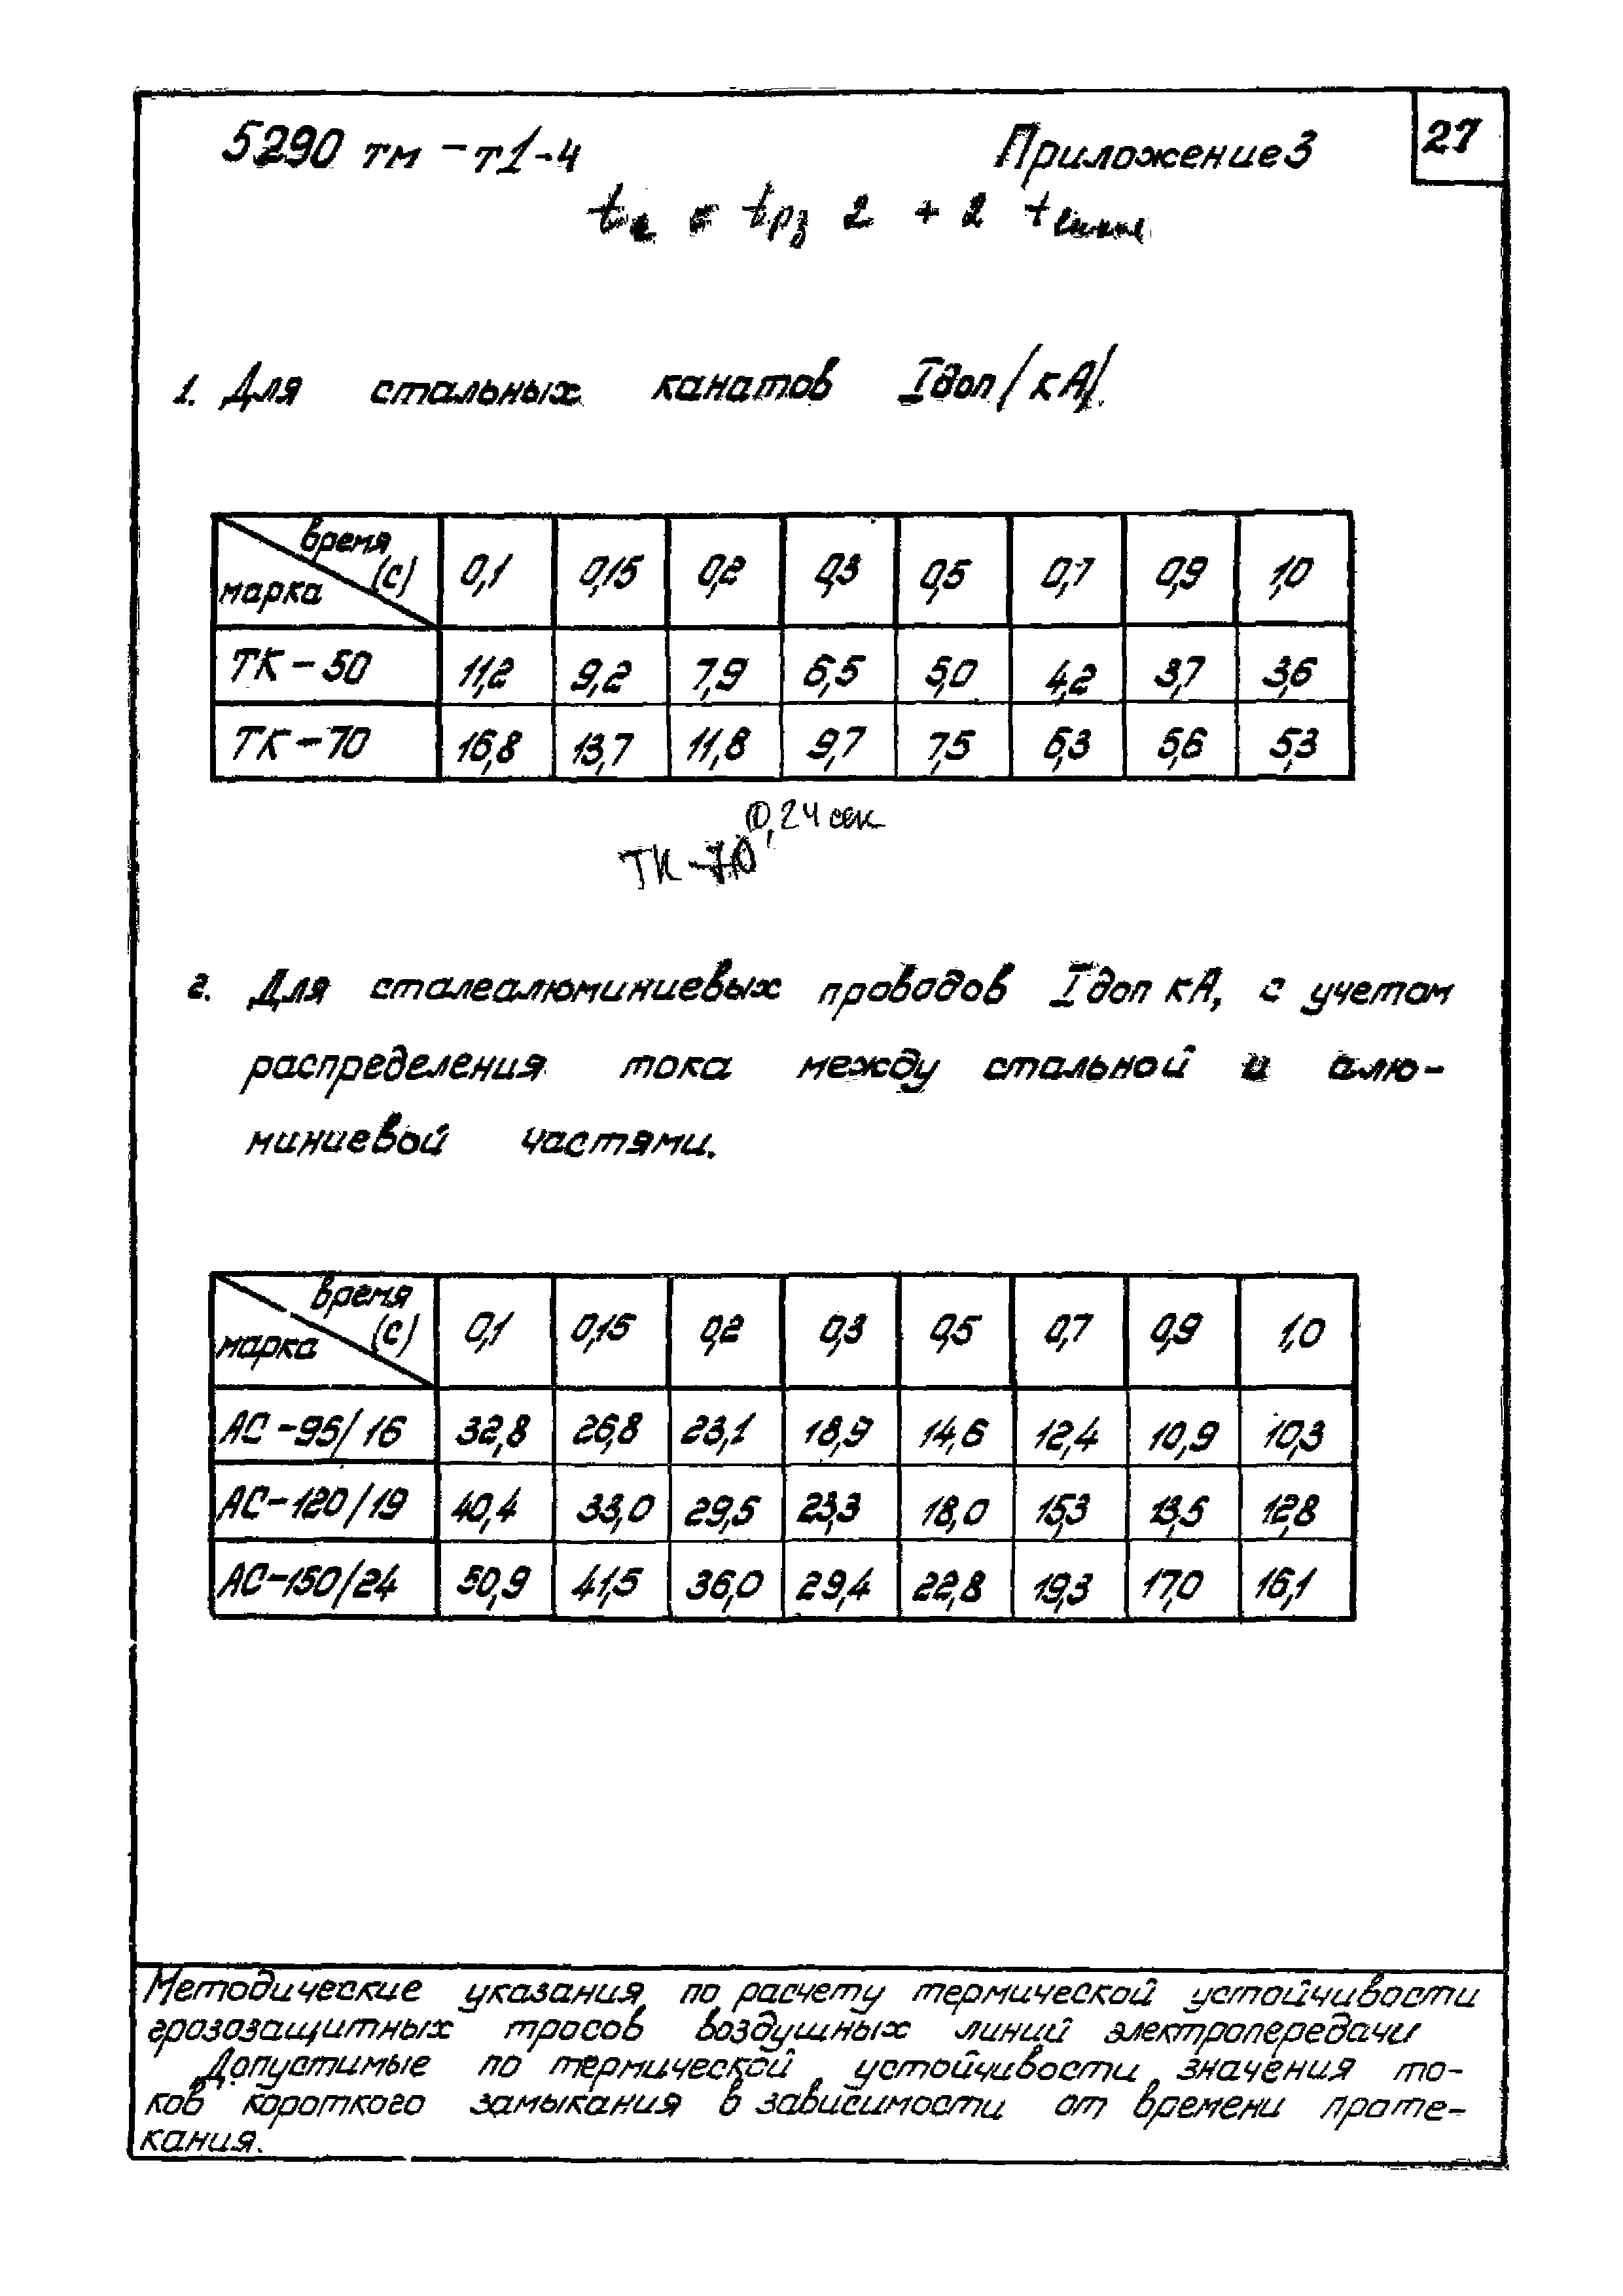 5290 тм -т1-4 Приложение 3 27
t = tрз 2 + 2 t
1. Для стальных канатов Iдоп /кА/.
время (с) марка 0,1 0,15 0,2 0,3 0,5 0,7 0,9 1,0
ТК-50 11,2 9,2 7,9 6,5 5,0 4,2 3,7 3,6
ТК-70 16,8 13,7 11,8 9,7 7,5 6,3 5,6 5,3
0,24 сек
ТК-70
2. Для сталеалюминиевых проводов Iдоп кА, с учетом
распределения тока между стальной и алю-
миниевой частями.
время (с) марка 0,1 0,15 0,2 0,3 0,5 0,7 0,9 1,0
АС-95/16 32,8 26,8 23,1 18,9 14,6 12,4 10,9 10,3
АС-120/19 40,4 33,0 29,5 23,3 18,0 15,3 13,5 12,8
АС-150/24 50,9 41,5 36,0 29,4 22,8 19,3 17,0 16,1
Методические указания по расчету термической устойчивости
грозозащитных тросов воздушных линий электропередачи
Допустимые по термической устойчивости значения то-
ков короткого замыкания в зависимости от времени проте-
кания.